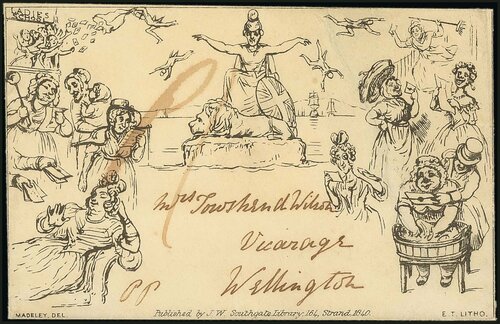 LADIES
SCHOOL
Mrs Townshend Wilson
Vicarage
Wellington
PP
Published by J. W. Southgate Library. 164, Strand. 1840.
MADELEY, DEL.
E. T. LITHO.